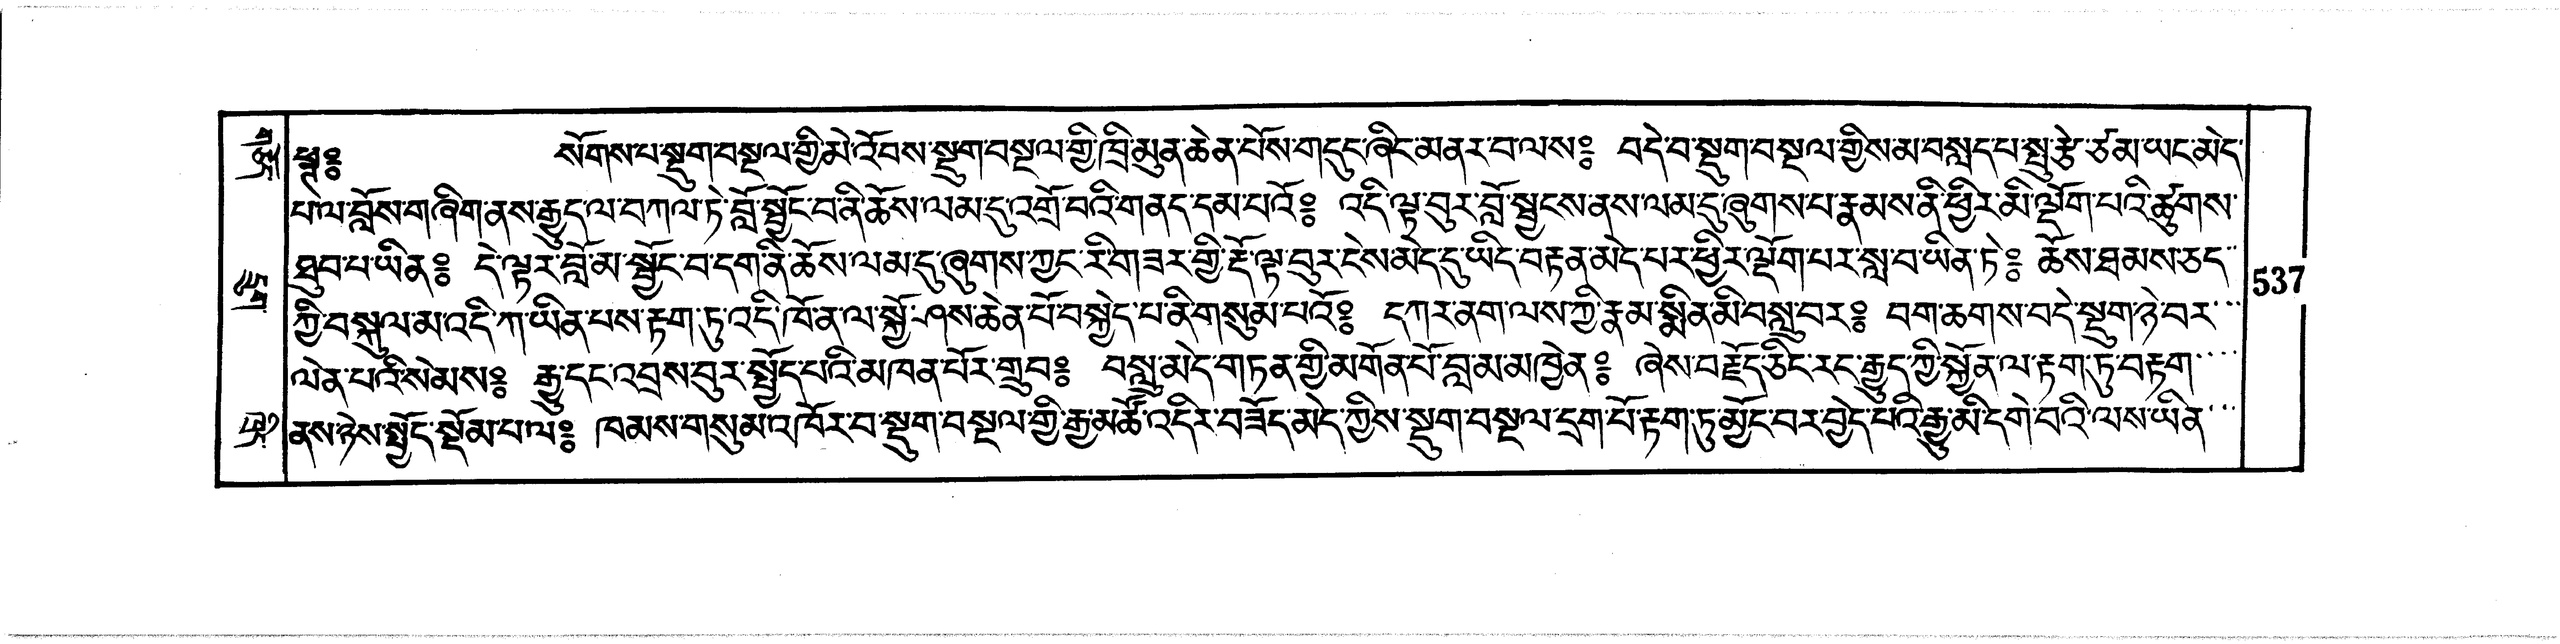 ༄༅༔ སོགས་པ་སྡུག་བསྔལ་གྱི་མེ་འོབས་སྡུག་བསྔལ་གྱི་ཁྲི་མུན་ཆེན་པོས་གདུང་ཞིང་མནར་བ་ལས༔ བདེ་བ་སྡུག་བསྔལ་གྱིས་མ་བསླད་པ་སྤུ་རྩེ་ཙམ་ཡང་མེད་
པ་ལ་བློས་གཞིག་ནས་རྒྱུད་ལ་བཀལ་ཏེ་བློ་སྦྱོང་བ་ནི་ཆོས་ལམ་དུ་འགྲོ་བའི་གནད་དམ་པའོ༔ འདི་ལྟ་བུར་བློ་སྦྱངས་ནས་ལམ་དུ་ཞུགས་པ་རྣམས་ནི་ཕྱིར་མི་ལྡོག་པའི་ཚུགས་
ཐུབ་པ་ཡིན༔ དེ་ལྟར་བློ་མ་སྦྱོང་བ་དག་ནི་ཆོས་ལམ་དུ་ཞུགས་ཀྱང་རི་གཟར་གྱི་རྡོ་ལྟ་བུར་ངེས་མེད་དུ་ཡིད་བརྟན་མེད་པར་ཕྱིར་ལྡོག་པར་སླ་བ་ཡིན་ཏེ༔ ཆོས་ཐམས་ཅད་
ཀྱི་བསྐུལ་མ་འདི་ཀ་ཡིན་པས་རྟག་ཏུ་འདི་ཁོ་ན་ལ་སྐྱོ་ཤས་ཆེན་པོ་བསྐྱེད་པ་ནི་གསུམ་པའོ༔ དཀར་ནག་ལས་ཀྱི་རྣམ་སྨིན་མི་བསླུ་བར༔ བག་ཆགས་བདེ་སྡུག་ཉེ་བར
ལེན་པའི་སེམས༔ རྒྱུ་དང་འབྲས་བུར་སྦྱོད་པའི་མཁན་པོར་གྲུབ༔ བསླུ་མེད་གཏན་གྱི་མགོན་པོ་བླ་མ་མཁྱེན༔ ཞེས་བརྗོད་ཅིང་རང་རྒྱུད་ཀྱི་སྐྱོན་ལ་རྟག་ཏུ་བརྟག
ནས་ཉེས་སྤྱོད་སྡོམ་པ་ལ༔ ཁམས་གསུམ་འཁོར་བ་སྡུག་བསྔལ་གྱི་རྒྱ་མཚོ་འདིར་བཟོད་མེད་ཀྱིས་སྡུག་བསྔལ་དྲག་པོ་རྟག་ཏུ་མྱོང་བར་བྱེད་པའི་རྒྱུ་མི་དགེ་བའི་ལས་ཡིན
537